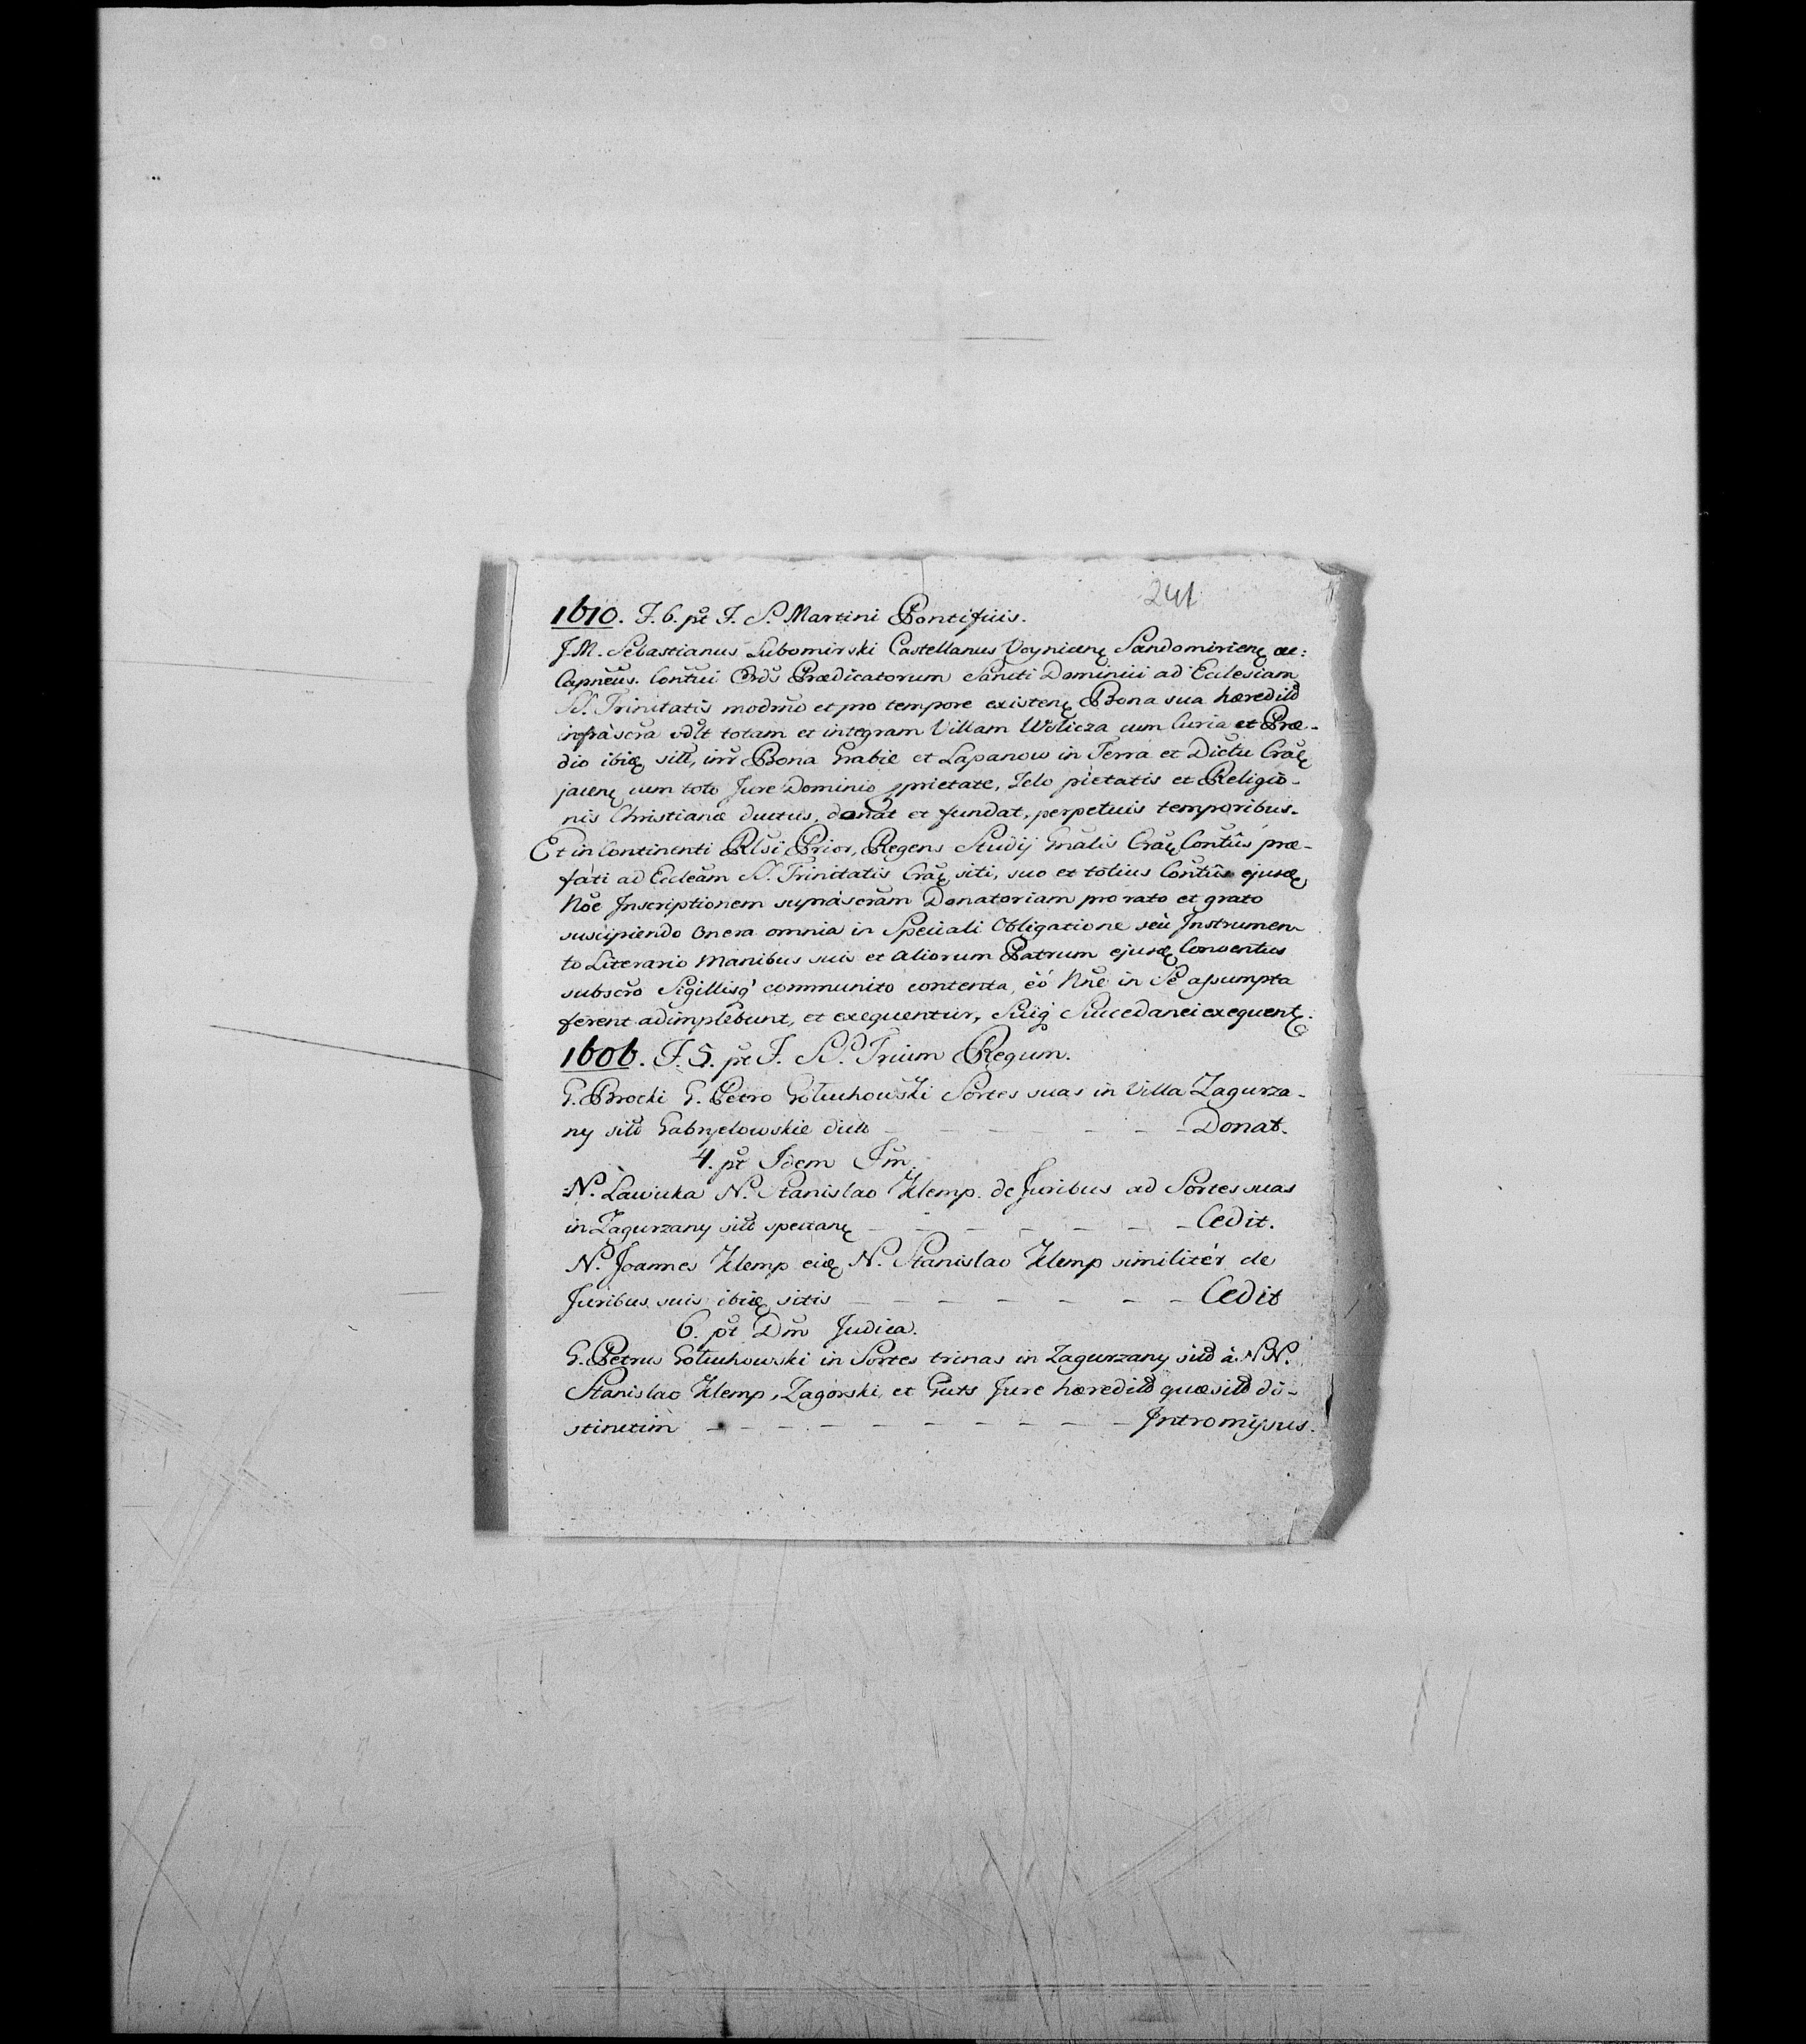 241
1610. F. 6. pt F. S. Martini Pontificis.
J. M. Sebastianus Lubomirski Castellanus Voynicen Sandomirien ac:
Capneus. Contui Ords Prædicatorum Sancti Dominici ad Ecclesiam
SS. Trinitatis modrno et pro tempore existen Bona sua hæredita
infrascra vdlt totam et integram Villam Wolicza cum Curia et Præ-
dio ibid sitt, inr Bona Grabie et Lapanow in Terra et Dictu Crac
jacen cum toto Jure Dominio pprietate, Zelo pietatis et Religio-
nis Christianæ ductus, donat et fundat, perpetuis temporibus.
Et in Continenti Rlsi Prior, Regens Studij Gnalis Crac Contus præ-
fati ad Eccleam SS. Trinitatis Crac siti, suo et totius Contus ejusd
Noe Inscriptionem supràscram Donatoriam pro rato et grato
suscipiendo Onera omnia in Speciali Obligatione seù Instrumen
to Literario Manibus suis et aliorum Patrum ejusd Conventus
subscro Sigillisq communito contenta, eó Nne in Se assumpta
ferent adimplebunt, et exequentur, Suiq Succedanei exequent.
1606. F. 5. pt F. SS. Trium Regum.
G. Brocki G. Petro Gołuchowski Sortes suas in Villa Zagurza-
ny sitt Gabryelowskie dictt - - - - - - Donat.
4. pt Idem Fm.
N. Ławicka N. Stanislao Klemp. de Juribus ad Sortes suas
in Zagurzany sitt spectan - - - - - - Cedit.
N. Joannes Klemp eid N. Stanislao Klemp similitér de
Juribus suis ibid sitis - - - - - - - Cedit
6. pt Dm Judica.
G. Petrus Gołuchowski in Sortes trinas in Zagurzany sitt à NN.
Stanislao Klemp, Zagórski, et Guts Jure hæredita quæsitt di-
stinctim - - - - - - - - - Intromissus.